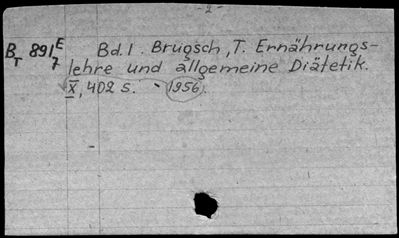 - 2 -
B_T 891 E/7 Bd.1. Brugsch, T. Ernährungs-
lehre und allgemeine Diätetik.
X, 402 S. - 1956.